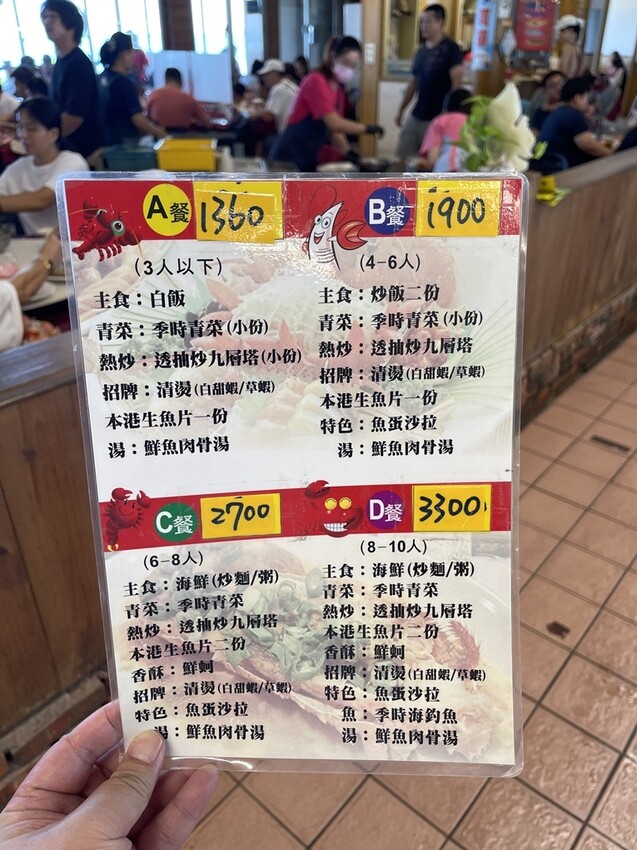 A餐 1360
(3人以下)
主食：白飯
青菜：季時青菜(小份)
熱炒：透抽炒九層塔(小份)
招牌：清燙(白甜蝦/草蝦)
本港生魚片一份
湯：鮮魚肉骨湯
B餐 1900
(4-6人)
主食：炒飯二份
青菜：季時青菜(小份)
熱炒：透抽炒九層塔
招牌：清燙(白甜蝦/草蝦)
本港生魚片一份
特色：魚蛋沙拉
湯：鮮魚肉骨湯
C餐 2700
(6-8人)
主食：海鮮(炒麵/粥)
青菜：季時青菜
熱炒：透抽炒九層塔
本港生魚片二份
香酥：鮮蚵
招牌：清燙(白甜蝦/草蝦)
特色：魚蛋沙拉
湯：鮮魚肉骨湯
D餐 3300
(8-10人)
主食：海鮮(炒麵/粥)
青菜：季時青菜
熱炒：透抽炒九層塔
本港生魚片二份
香酥：鮮蚵
招牌：清燙(白甜蝦/草蝦)
特色：魚蛋沙拉
魚：季時海釣魚
湯：鮮魚肉骨湯